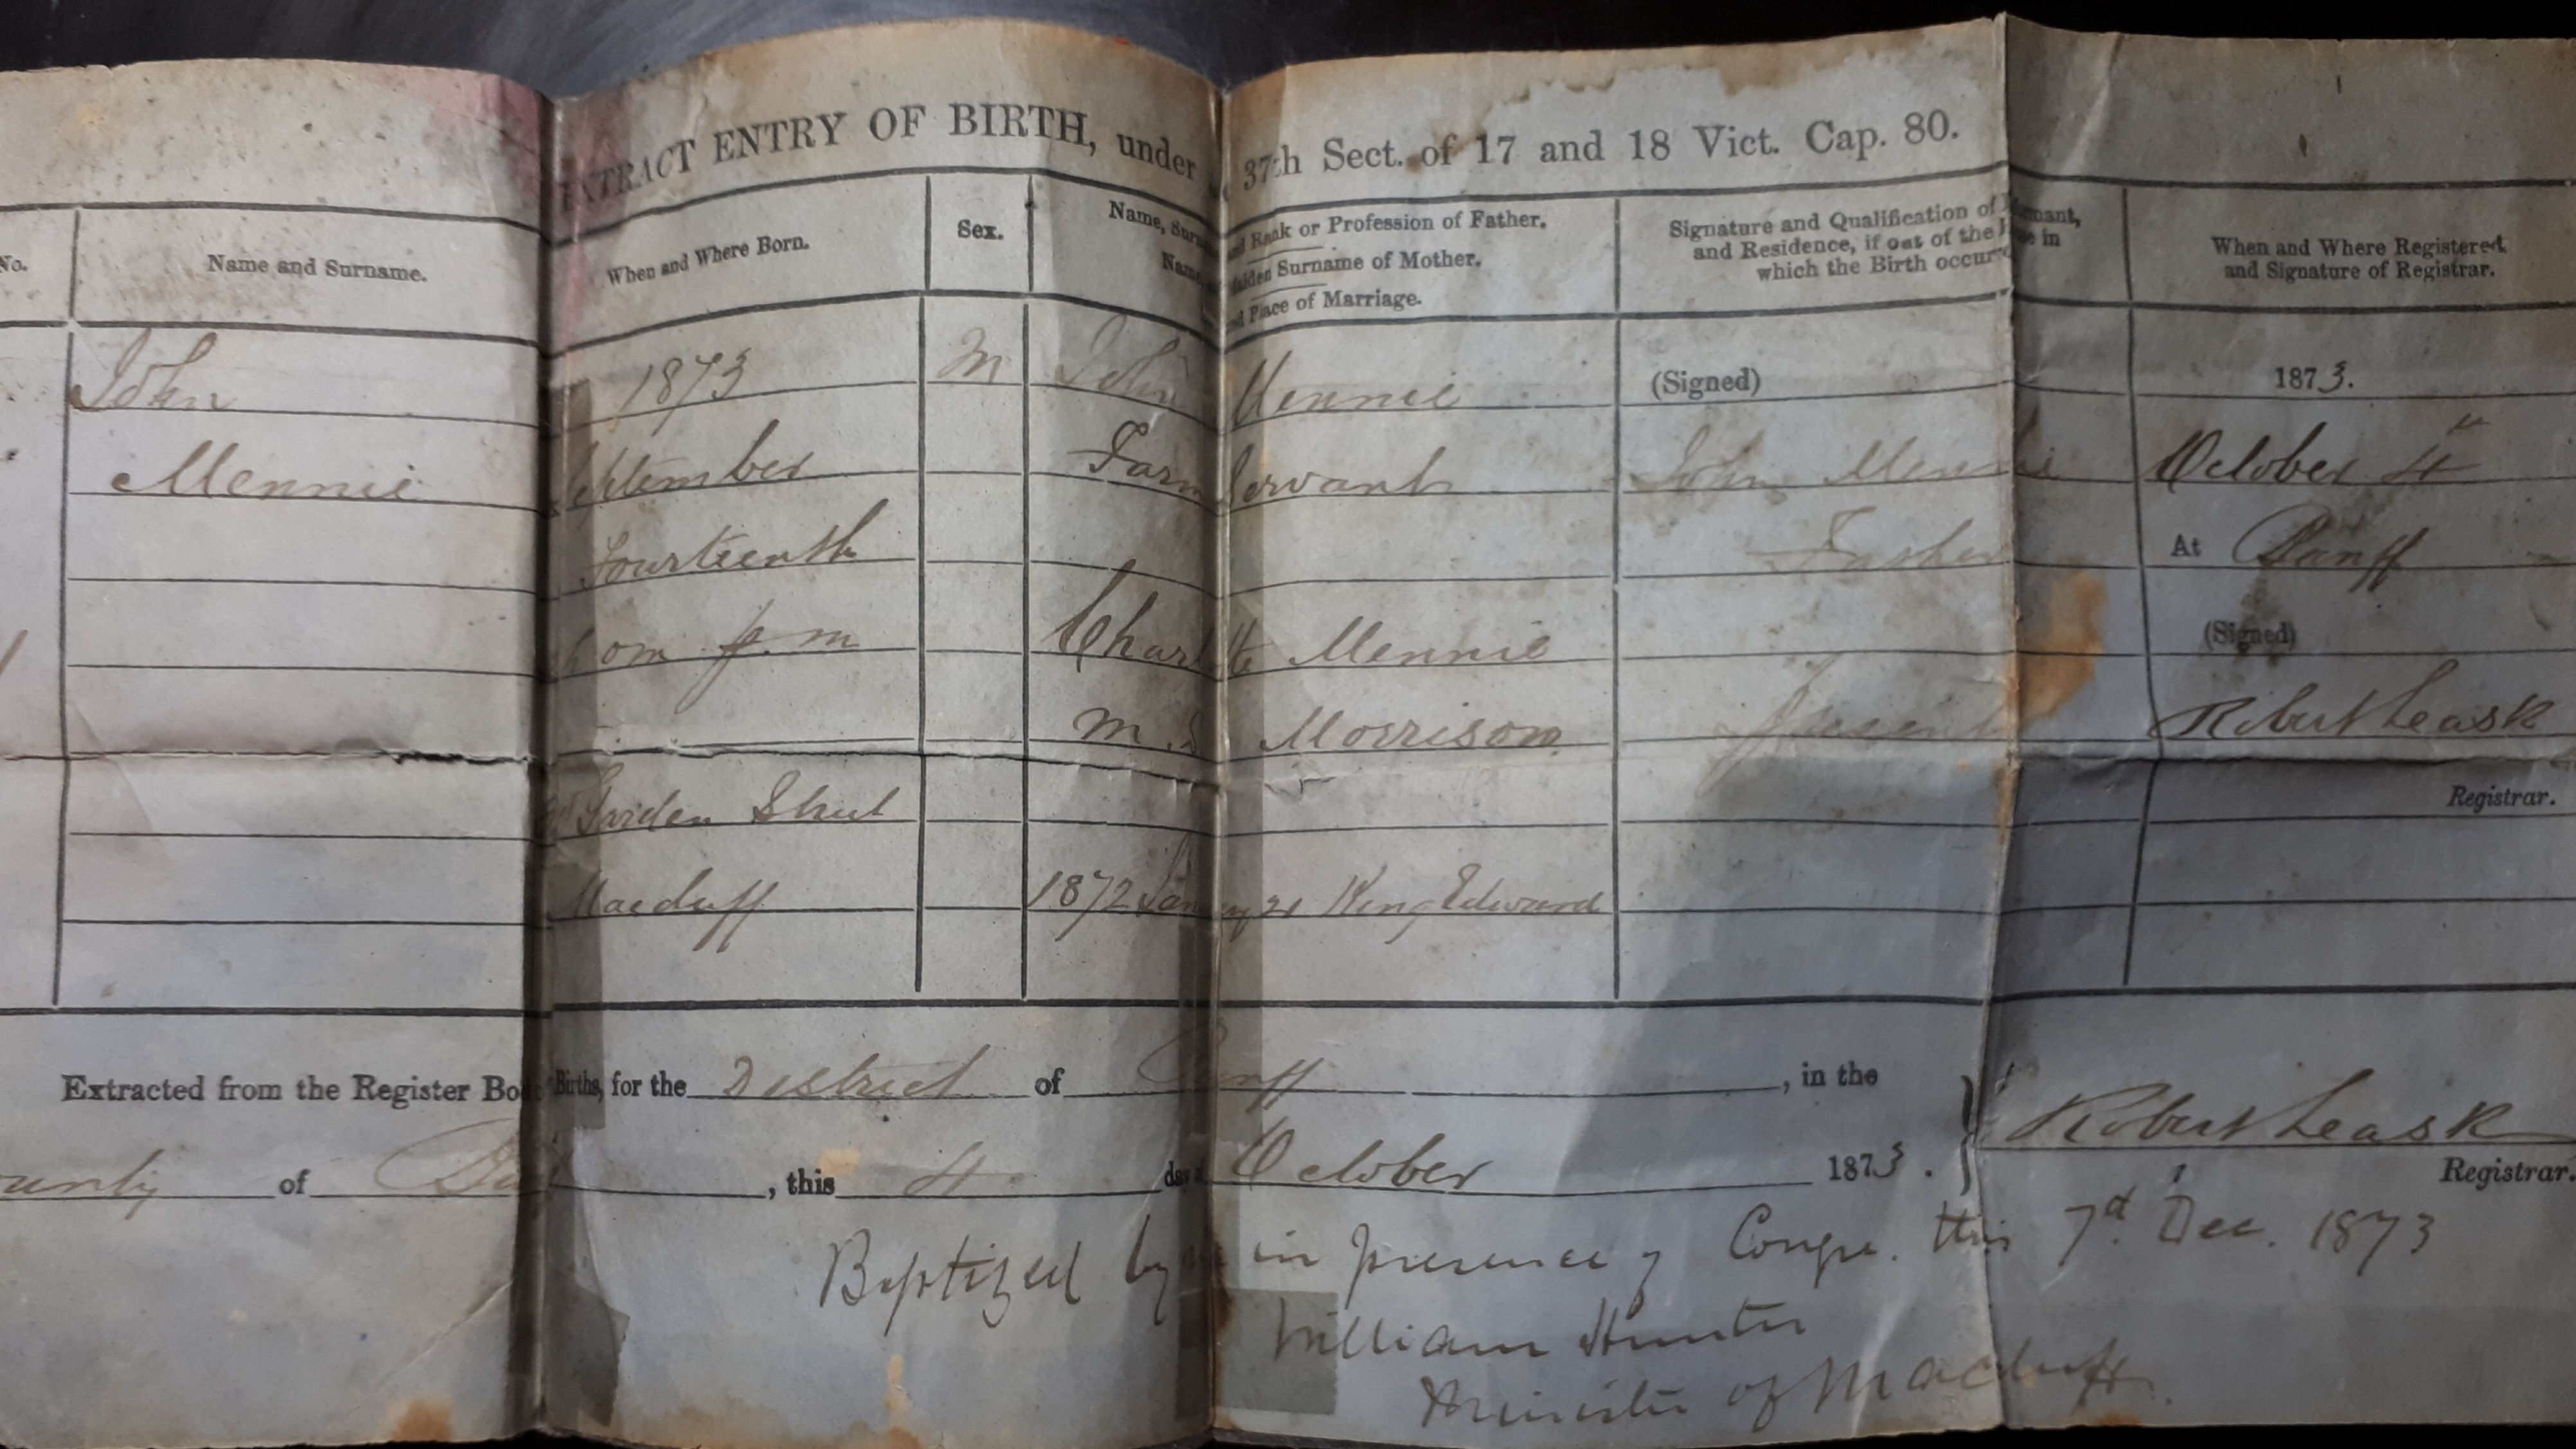 EXTRACT ENTRY OF BIRTH, under 37th Sect. of 17 and 18 Vict. Cap. 80.
No.
Name and Surname.
When and Where Born.
Sex.
Name, Surname and Rank or Profession of Father.
Name, and Maiden Surname of Mother.
and Place of Marriage.
Signature and Qualification of Informant,
and Residence, if out of the House in
which the Birth occurred
When and Where Registered,
and Signature of Registrar.
John
Mennie
1873
September
Fourteenth
p. m
Garden Street
Macduff
M
John Mennie
Farm Servant
Charlotte Mennie
M. S. Morrison
1872 January 21 King Edward
(Signed)
John Mennie
Father
Present
1873.
October 4th
At Banff
(Signed)
Robert Leask
Registrar.
Extracted from the Register Book Births, for the District of Banff, in the
County of Banff, this 4 day of October 1873.
Robert Leask
Registrar.
Baptized by me in presence of Congn. this 7d. Dec. 1873
William Hunter
Minister of Macduff.